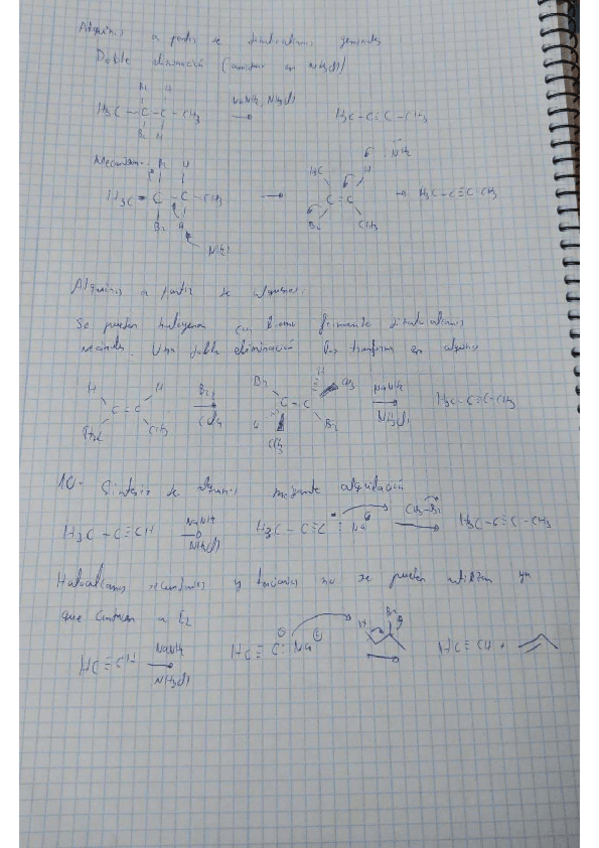 Alquinos a partir de dihaloalcanos geminales
Doble eliminación (amidas en NH3(l))
Br H
H3C - C - C - CH3 NaNH2, NH3(l) → H3C - C≡C - CH3
Br H
Mecanismo. Br H H3C H :NH2
H3C - C - C - CH3 → C = C → H3C-C≡C-CH3
Br H Br CH3
NH2:
Alquinos a partir de alquenos.
Se pueden halogenar con Bromo formando dihaloalcanos
vecinales. Una doble eliminación los transforma en alquino
H H Br H CH3
C = C Br2 → C - C NaNH2 → H3C-C≡C-CH3
CH3 CCl4 Br NH3(l)
CH3
10.- Síntesis de alquinos mediante alquilación
H3C - C≡CH NaNH2 → H3C - C≡C: Na⊕ CH3-Br → H3C-C≡C-CH3
NH3(l)
Haloalcanos secundarios y terciarios no se pueden utilizar ya
que E2
Br
HC≡CH NaNH2 → HC≡C: Na⊕ H → HC≡CH +
NH3(l)